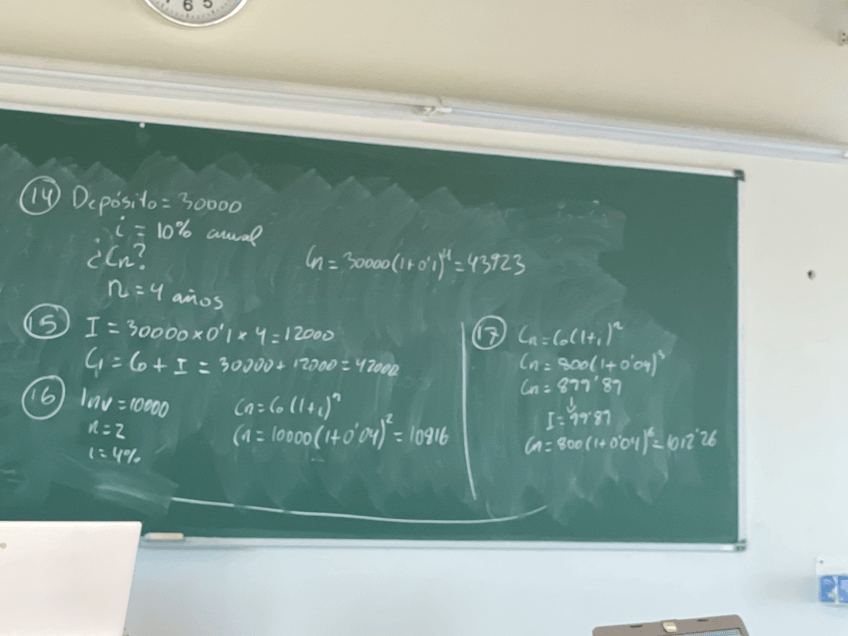 6 5
14 Depósito = 30000
i = 10% anual
¿Cn?
n = 4 años
Cn = 30000(1+0'1)^4 = 43923
15 I = 30000 x 0'1 x 4 = 12000
C1 = C0 + I = 30000 + 12000 = 42000
16 Inv = 10000
n = 2
i = 4%
Cn = C0(1+i)^n
Cn = 10000(1+0'04)^2 = 10816
17 Cn = C0(1+i)^n
Cn = 800(1+0'04)^3
Cn = 899'89
I = 99'89
Cn = 800(1+0'04)^6 = 1012'26